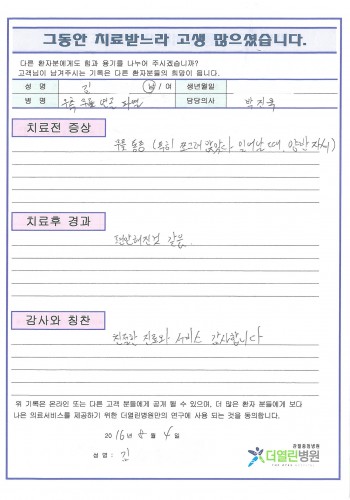 그동안 치료받느라 고생 많으셨습니다.
다른 환자분에게도 힘과 용기를 나누어 주시겠습니까?
고객님이 남겨주시는 기록은 다른 환자분들의 희망이 됩니다.
성 명 김 남 / 여 생년월일
병 명 우측 무릎 연골 파열 담당의사 박진욱
치료전 증상
무릎 통증 (특히 쪼그려 앉았다 일어날 때, 양반자세)
치료후 경과
편안해진것 같음.
감사와 칭찬
친절한 진료와 서비스 감사합니다
위 기록은 온라인 또는 다른 고객 분들에게 공개 될 수 있으며, 더 많은 환자 분들에게 보다
나은 의료서비스를 제공하기 위한 더열린병원만의 연구에 사용 되는 것을 동의합니다.
2016년 8월 4일
성 명 : 김
관절중점병원
더열린병원